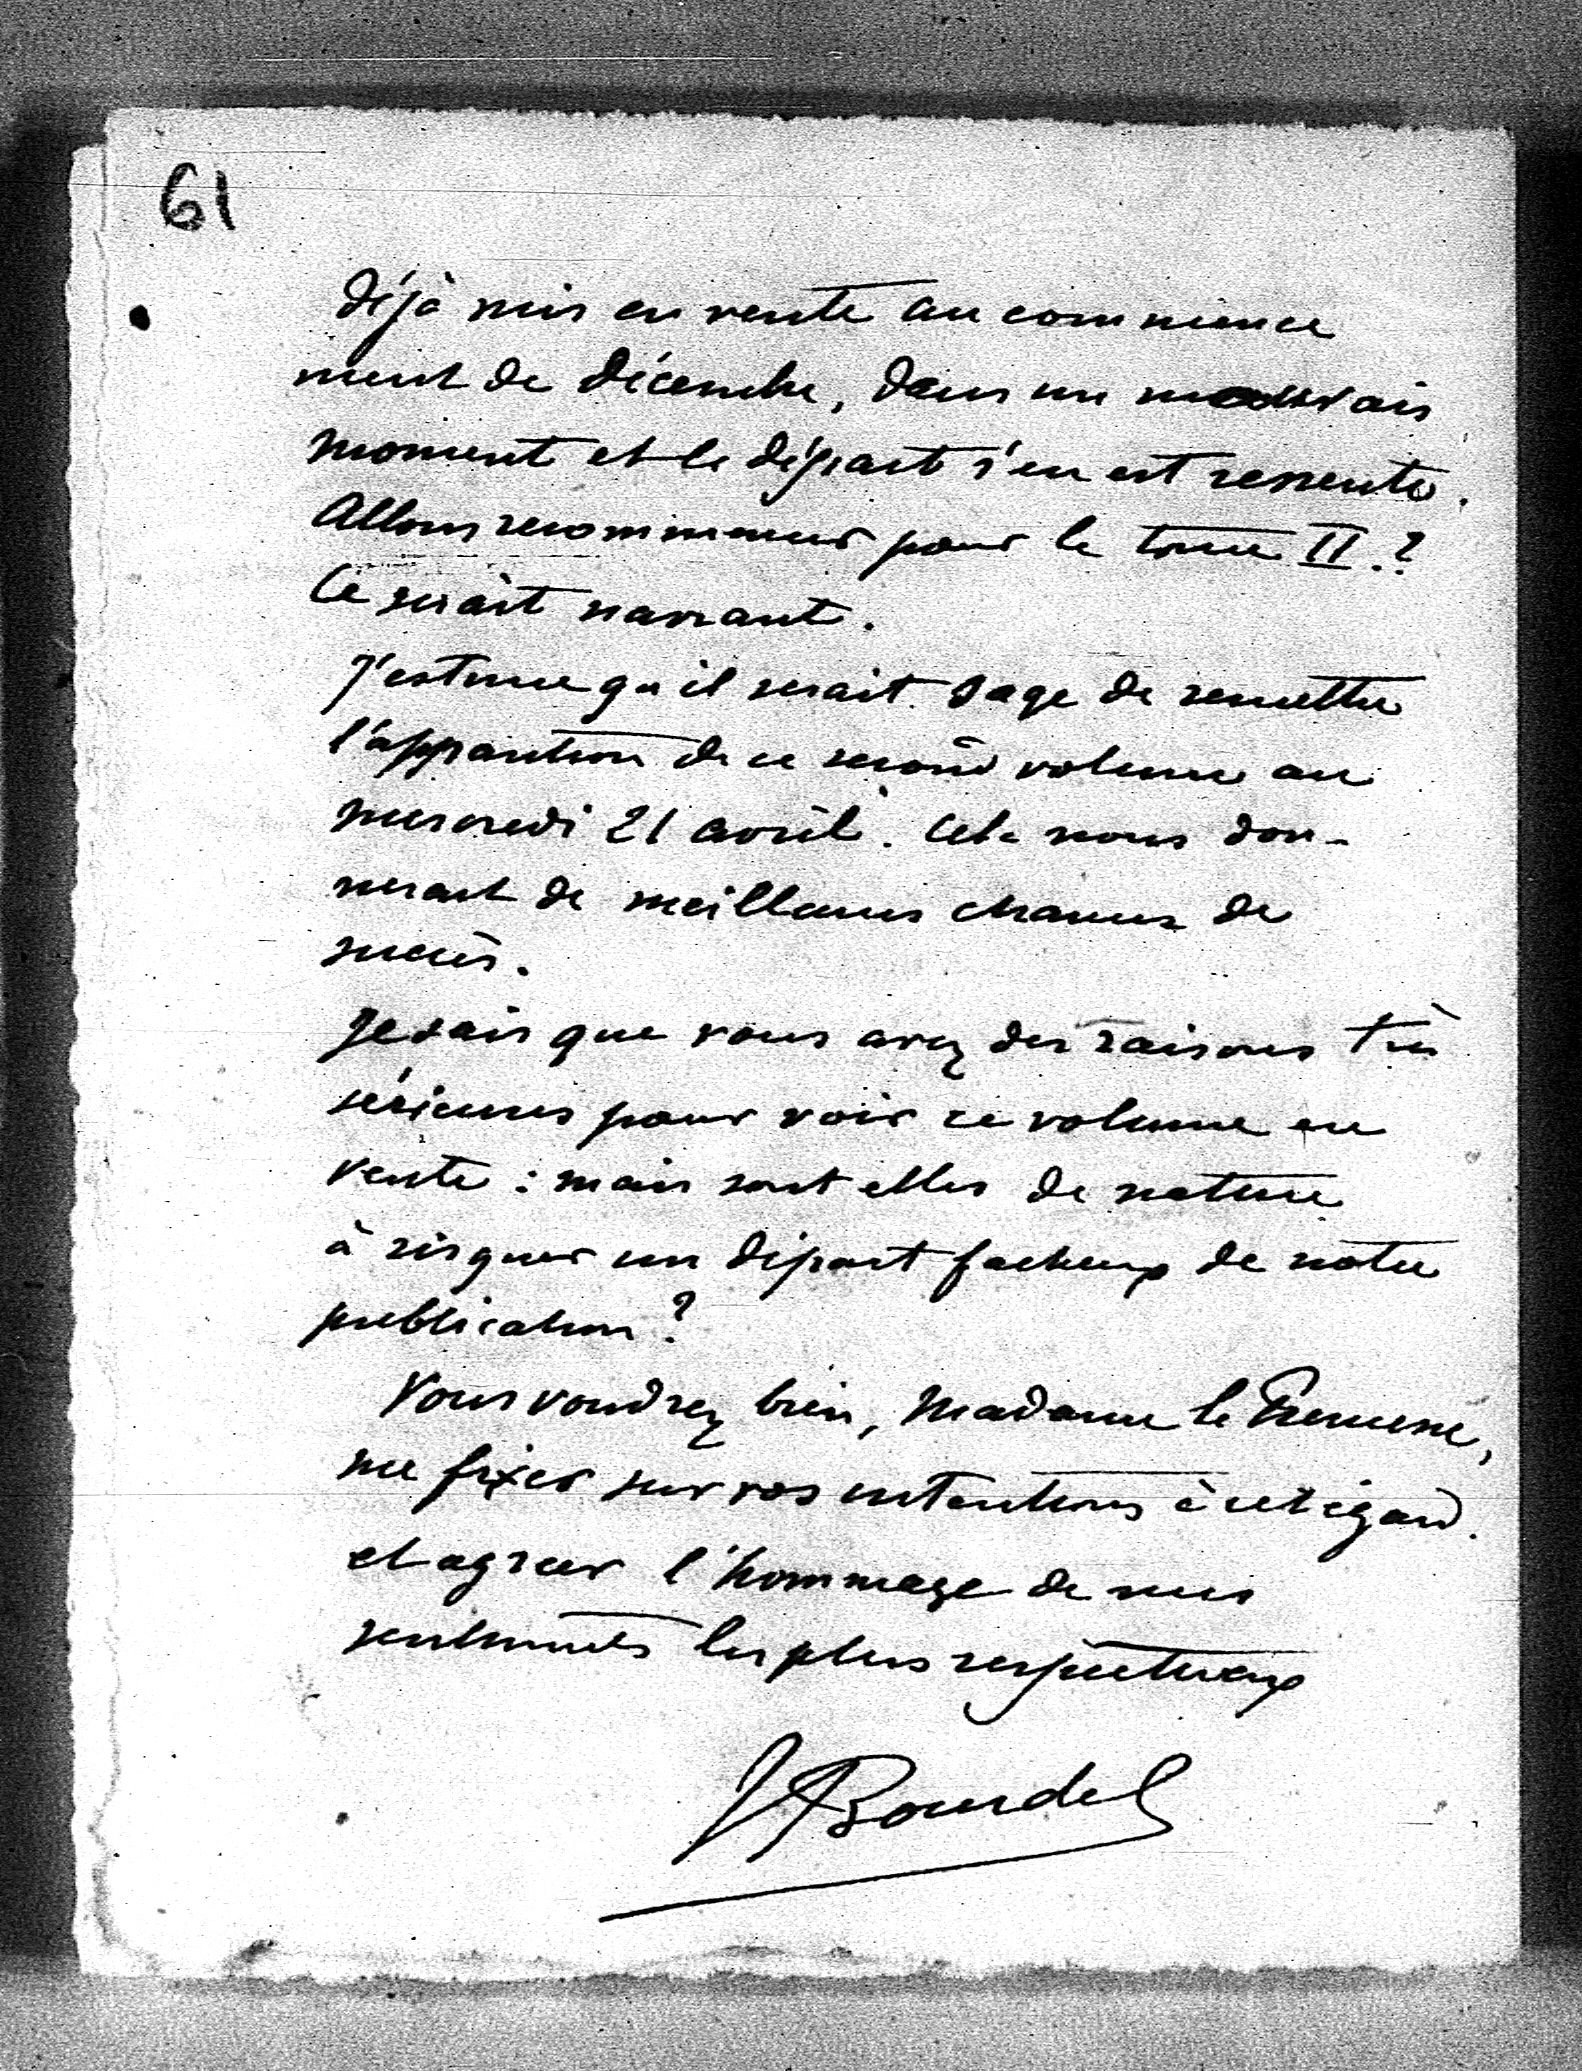 61
déjà mis en vente au commence
ment de décembre, dans un mauvais
moment et le départ s'en est ressenti.
Allons recommencer pour le tome II.?
Ce serait navrant.
J'estime qu'il serait sage de remettre
l'apparition de ce second volume au
mercredi 21 avril. Cela nous don-
nerait de meilleures chances de
succès.
Je sais que vous avez des raisons très
sérieuses pour voir ce volume en
vente : mais sont elles de nature
à risquer un départ facheux de notre
publication ?
Vous voudrez bien, Madame la Princesse,
me fixer sur vos intentions à cet égard.
et agréer l'hommage de mes
sentiments les plus respectueux
J Bourdel